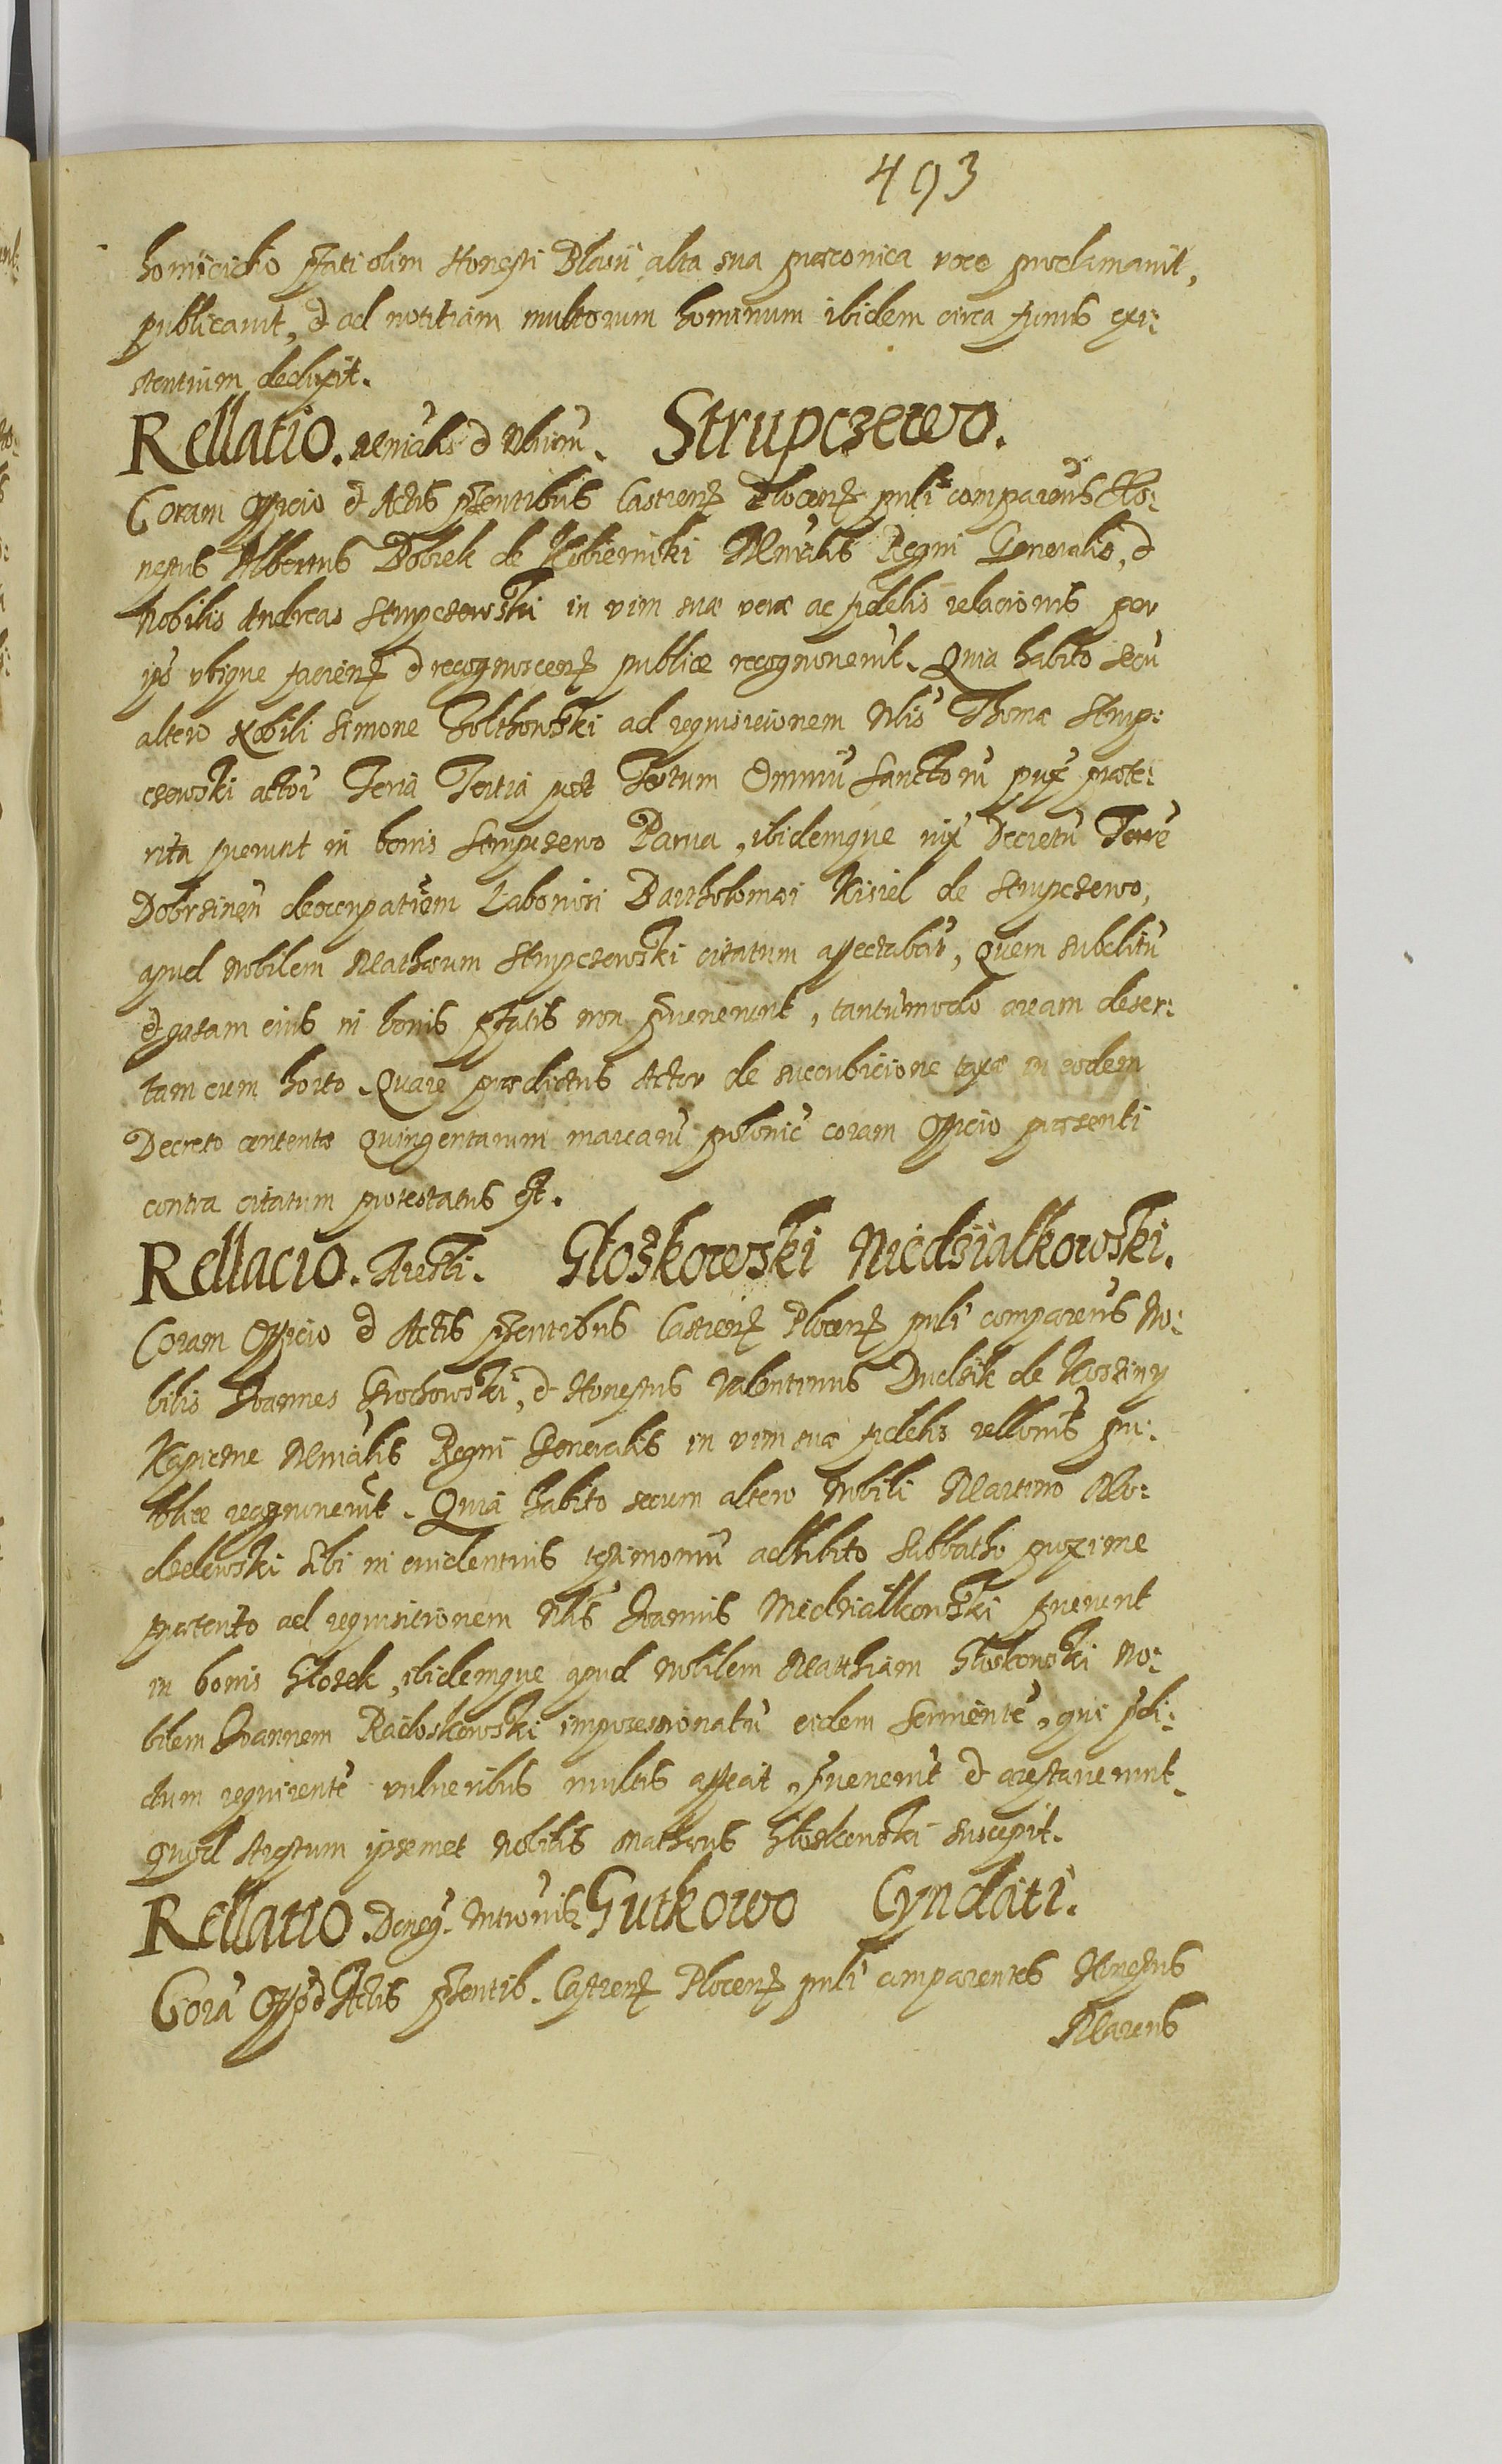 493
homicidio pfati olim Honesti Blasii alta sua præconica voce proclamavit,
publicavit, & ad notitiam multorum hominum ibidem circa funus exi:
stentium deduxit.
Rellatio. Strupczewo.
Coram Officio & Actis pńtibus Castren Plocen pnli comparens Ho:
nestus Albertus Dobrek de Kobierniki Mnrälis Regni Generalis, &
Nobilis Andreas Strupczewski in vim suæ veræ ac fidelis relacionis per
ips ubique facien & recognoscen publice recognoverüt. Quia habito secu
altero Nobili Simone Zolthowski ad requisicionem Nlis Thomæ Strup:
czewski actoř Feria Tertia post Festum Omniu Sanctoru prox præte:
rita fuerunt in bonis Strupczewo Parva, ibidemque iux Decretu Terrē
Dobrzineñ deoccupatiōem Laboriosi Bartholomæi Kisiel de Strupczewo,
apud Nobilem Mathæum Strupczewski citatum affectabat, Quem subditu
& gazam eius in bonis pfatis non invenerunt, tantumodo aream deser:
tam cum horto. Quare prædictus Actor de succubicione taxæ in eodem
Decreto contentæ Quingentarum marcarū polonic coram Officio præsenti
contra citatum protestatus est.
Rellacio. Aresti. Głoskowski Niedzialkowski.
Coram Officio & Actis pńtibus Castren Plocen pnli comparens No:
bilis Joannes Grochowski, & Honestus Valentinus Dudzik de Kossiny
Kapiczne Mnrälis Regni Generalis in vim suæ fidelis rellonis pu:
blice recognoverüt. Quia habito secum altero Nobili Martino Mo:
dzelewski sibi in evidentius testimoniū adhibito Sabbatho proxime
præterito ad requisicionem Nlis Joannis Niedzialkowski fuerunt
in bonis Głosek, ibidemque apud Nobilem Matthiam Głoskowski No:
bilem Joannem Radoskowski impossessionatū eidem Servientē, qui pdi:
ctum requirentē vulneribus multis affecit, Invenerüt & arestaverunt.
quod Arestum ipsemet Nobilis Mathæus Głoskowski suscepit.
Rellatio. Deneg. Intronis. Gutkowo Cyndati.
Corā Offo & Actis pńtib. Castren Plocen pnli comparentes Honestus
Marcus